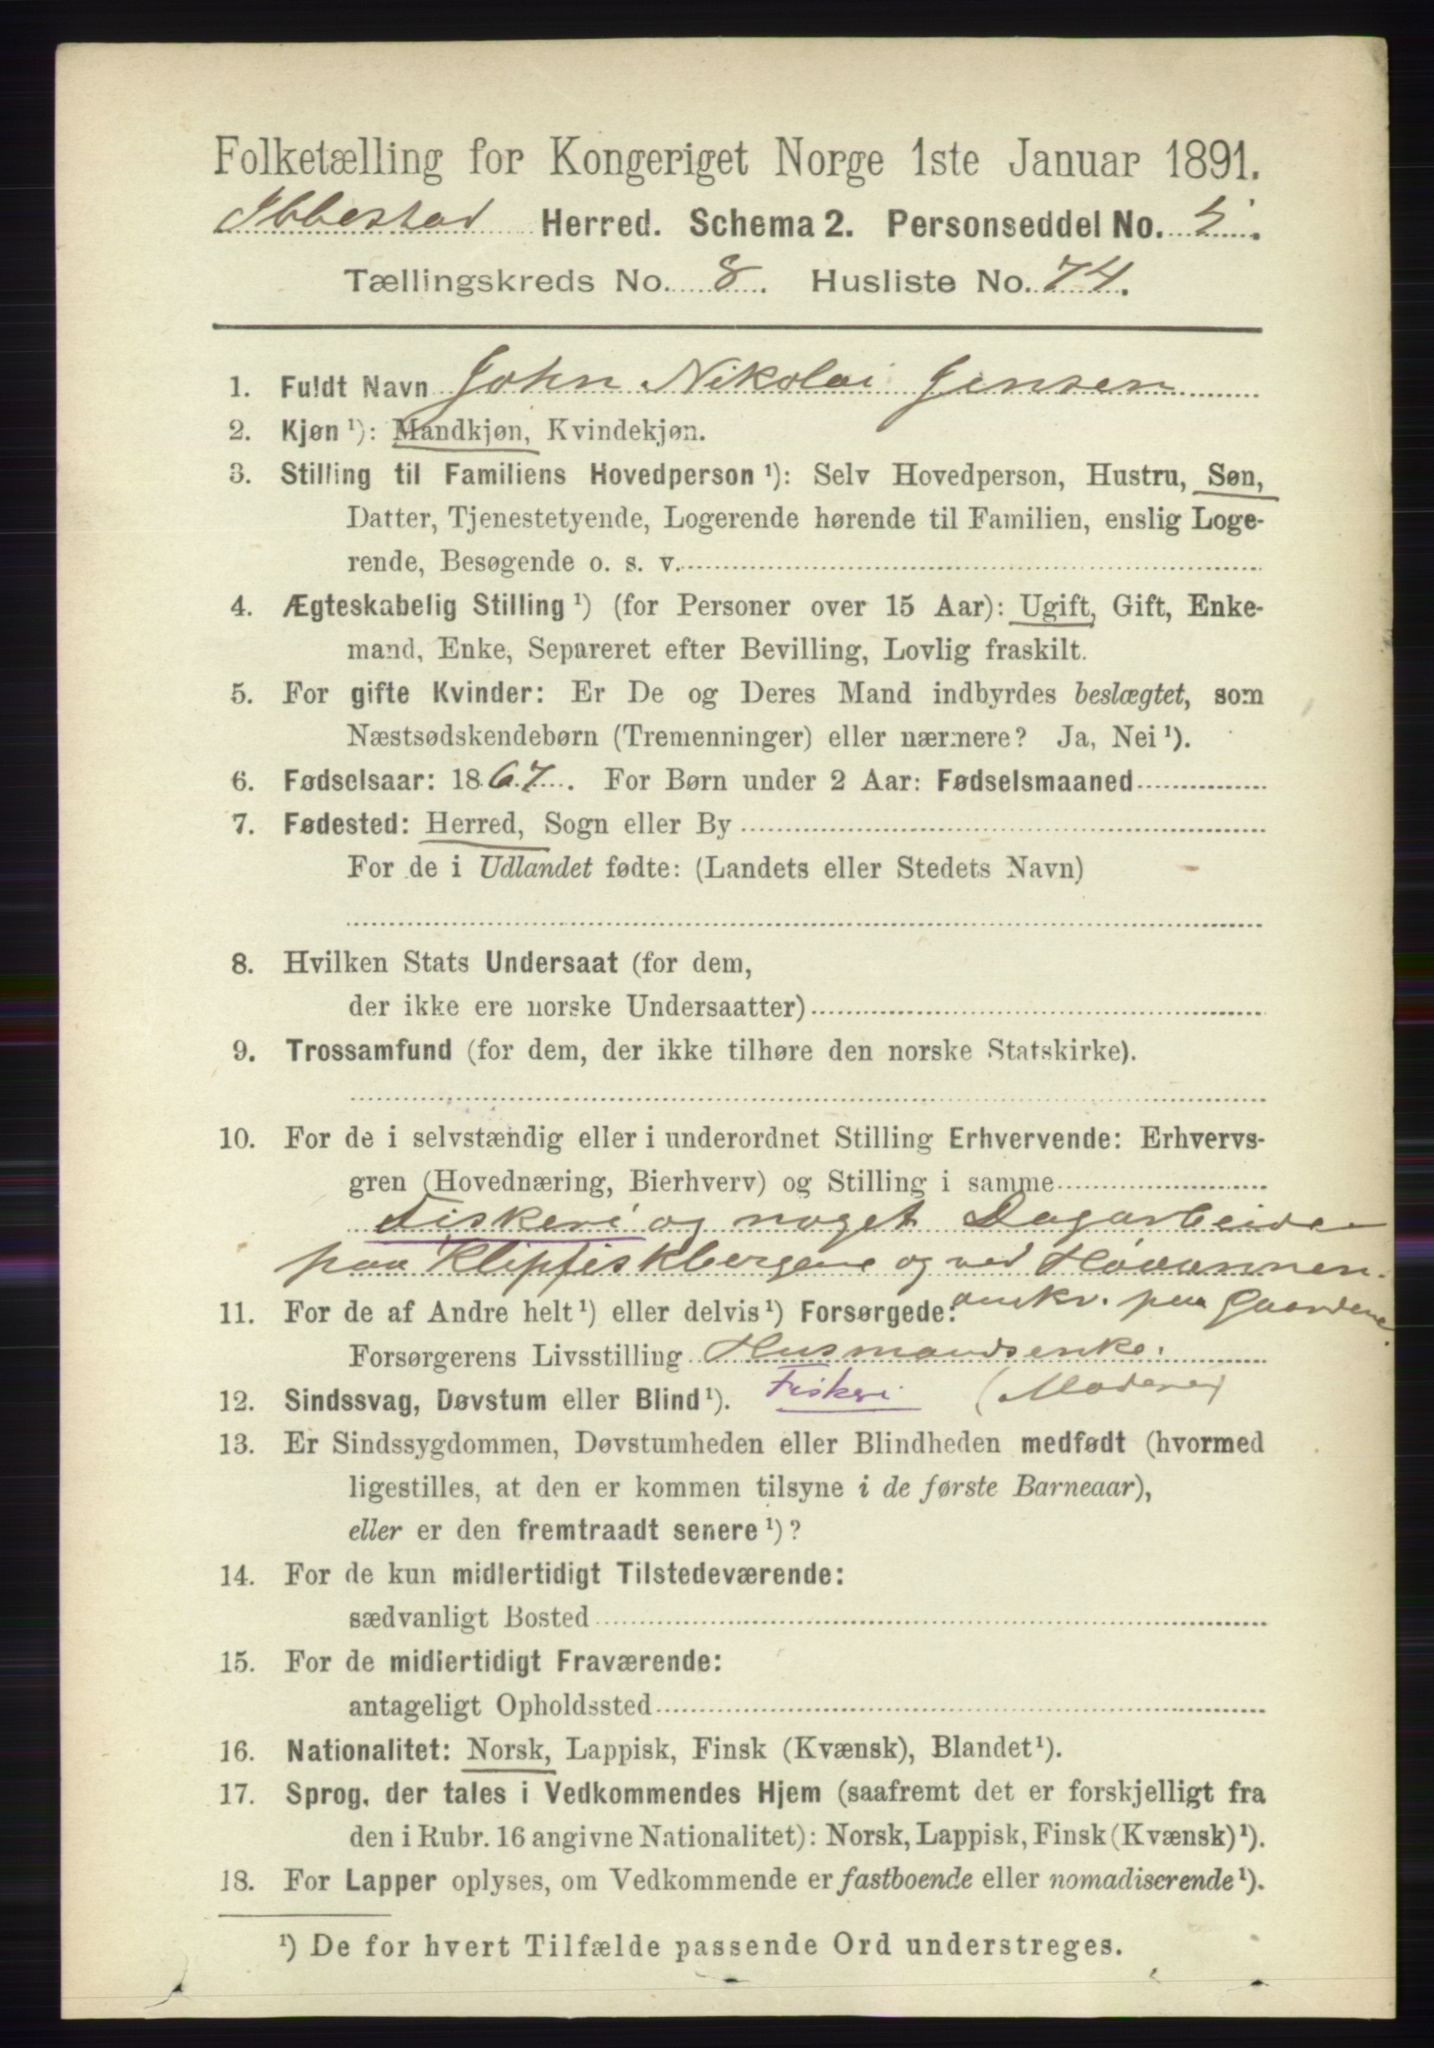 Folketælling for Kongeriget Norge 1ste Januar 1891.
Ibbestad Herred. Schema 2. Personseddel No. 5.
Tællingskreds No. 8. Husliste No. 74.
1. Fuldt Navn John Nikolai Jensen
2. Kjøn¹): Mandkjøn, Kvindekjøn.
3. Stilling til Familiens Hovedperson¹): Selv Hovedperson, Hustru, Søn,
Datter, Tjenestetyende, Logerende hørende til Familien, enslig Loge-
rende, Besøgende o. s. v.
4. Ægteskabelig Stilling¹) (for Personer over 15 Aar): Ugift, Gift, Enke-
mand, Enke, Separeret efter Bevilling, Lovlig fraskilt.
5. For gifte Kvinder: Er De og Deres Mand indbyrdes beslægtet, som
Næstsødskendebørn (Tremenninger) eller nærmere? Ja, Nei¹).
6. Fødselsaar: 1867. For Børn under 2 Aar: Fødselsmaaned
7. Fødested: Herred, Sogn eller By
For de i Udlandet fødte: (Landets eller Stedets Navn)
8. Hvilken Stats Undersaat (for dem,
der ikke ere norske Undersaatter)
9. Trossamfund (for dem, der ikke tilhøre den norske Statskirke).
10. For de i selvstændig eller i underordnet Stilling Erhvervende: Erhvervs-
gren (Hovednæring, Bierhverv) og Stilling i samme
Fiskeri og noget Dagarbeide
paa Klipfiskbergene og ved Høaannen.
paa Gaardene.
11. For de af Andre helt¹) eller delvis¹) Forsørgede:
Forsørgerens Livsstilling Husmandsenke.
12. Sindssvag, Døvstum eller Blind¹). Fiskeri (Moderen)
13. Er Sindssygdommen, Døvstumheden eller Blindheden medfødt (hvormed
ligestilles, at den er kommen tilsyne i de første Barneaar),
eller er den fremtraadt senere¹)?
14. For de kun midlertidigt Tilstedeværende:
sædvanligt Bosted
15. For de midlertidigt Fraværende:
antageligt Opholdssted
16. Nationalitet: Norsk, Lappisk, Finsk (Kvænsk), Blandet¹).
17. Sprog, der tales i Vedkommendes Hjem (saafremt det er forskjelligt fra
den i Rubr. 16 angivne Nationalitet): Norsk, Lappisk, Finsk (Kvænsk)¹).
18. For Lapper oplyses, om Vedkommende er fastboende eller nomadiserende¹).
¹) De for hvert Tilfælde passende Ord understreges.